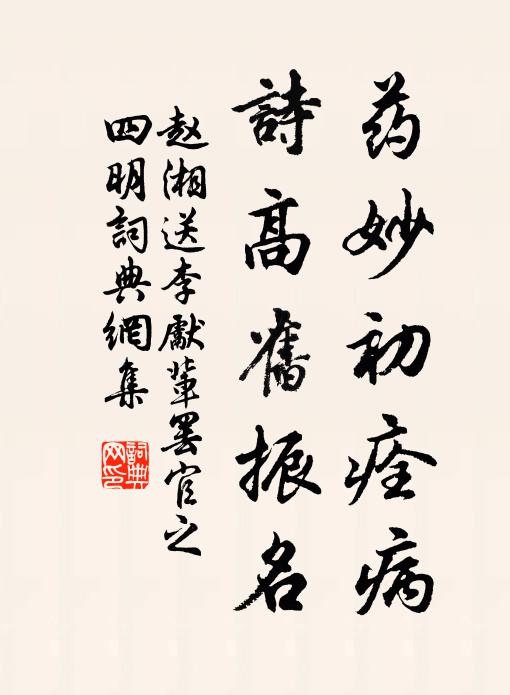 药妙初痊病
詩高舊振名
赵湘送李獻輩罢官之
四明詞典網集
詞典网印